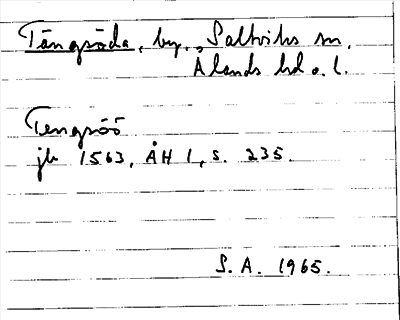 Tängsöda, by., Saltviks sn,
Ålands hd o. l.
Tengsöö
jb 1563, ÅH 1, s. 235.
S. A. 1965.